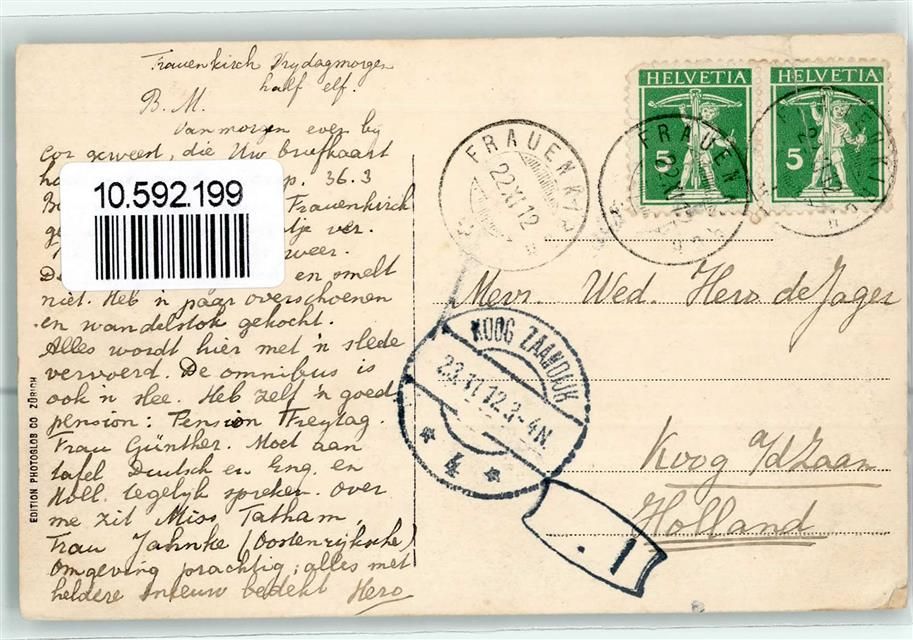 Frauenkirch Vrydagmorgen
half elf.
B. M.
Vanmorgen even by
Cor geweest, die Uw briefkaart
p. 36.3
Frauenkirch
ver.
weer.
en smelt
niet. Heb 'n paar overschoenen
en wandelstok gekocht.
Alles wordt hier met 'n slede
vervoerd. De omnibus is
ook 'n slee. Heb zelf 'n goed
pension: Pension Freytag.
Frau Günther. Moet aan
tafel Deutsch en Eng. en
Holl. tegelyk spreken. Over
me zit Miss Tatham,
Frau Jahnke (Oostenryksche)
Omgeving prachtig; alles met
heldere sneeuw bedekt Hero
10.592.199
EDITION PHOTOGLOB CO ZÜRICH
HELVETIA
5
HELVETIA
5
FRAUENK
22 XI 12
FRAUEN
22 XI
KOOG ZAANDIJK
23.11.12.3-4N
4
Mevr. Wed. Hero de Jager
Koog a/d Zaan
Holland
1